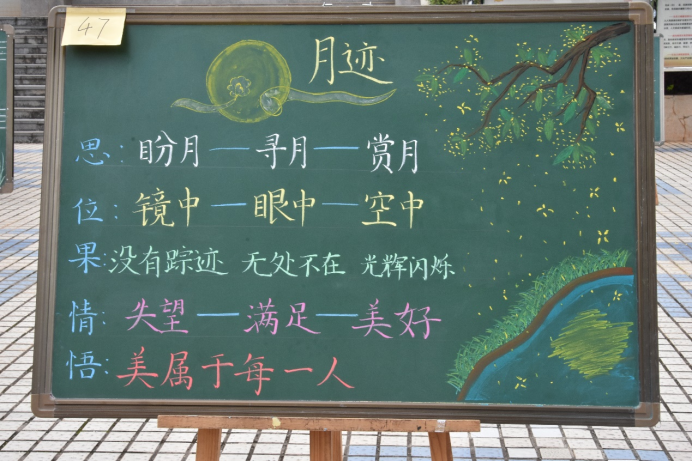 47
月迹
思：盼月—寻月—赏月
位：镜中—眼中—空中
果：没有踪迹 无处不在 光辉闪烁
情：失望—满足—美好
悟：美属于每一人